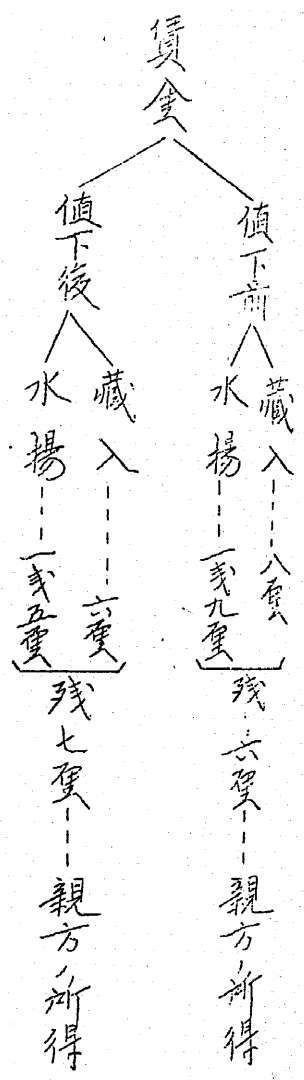 賃金
値下前
藏入-----八厘
水揚-----一戋九厘
残六厘---親方ノ所得
値下後
藏入-----六厘
水揚-----一戋五厘
残七厘---親方ノ所得